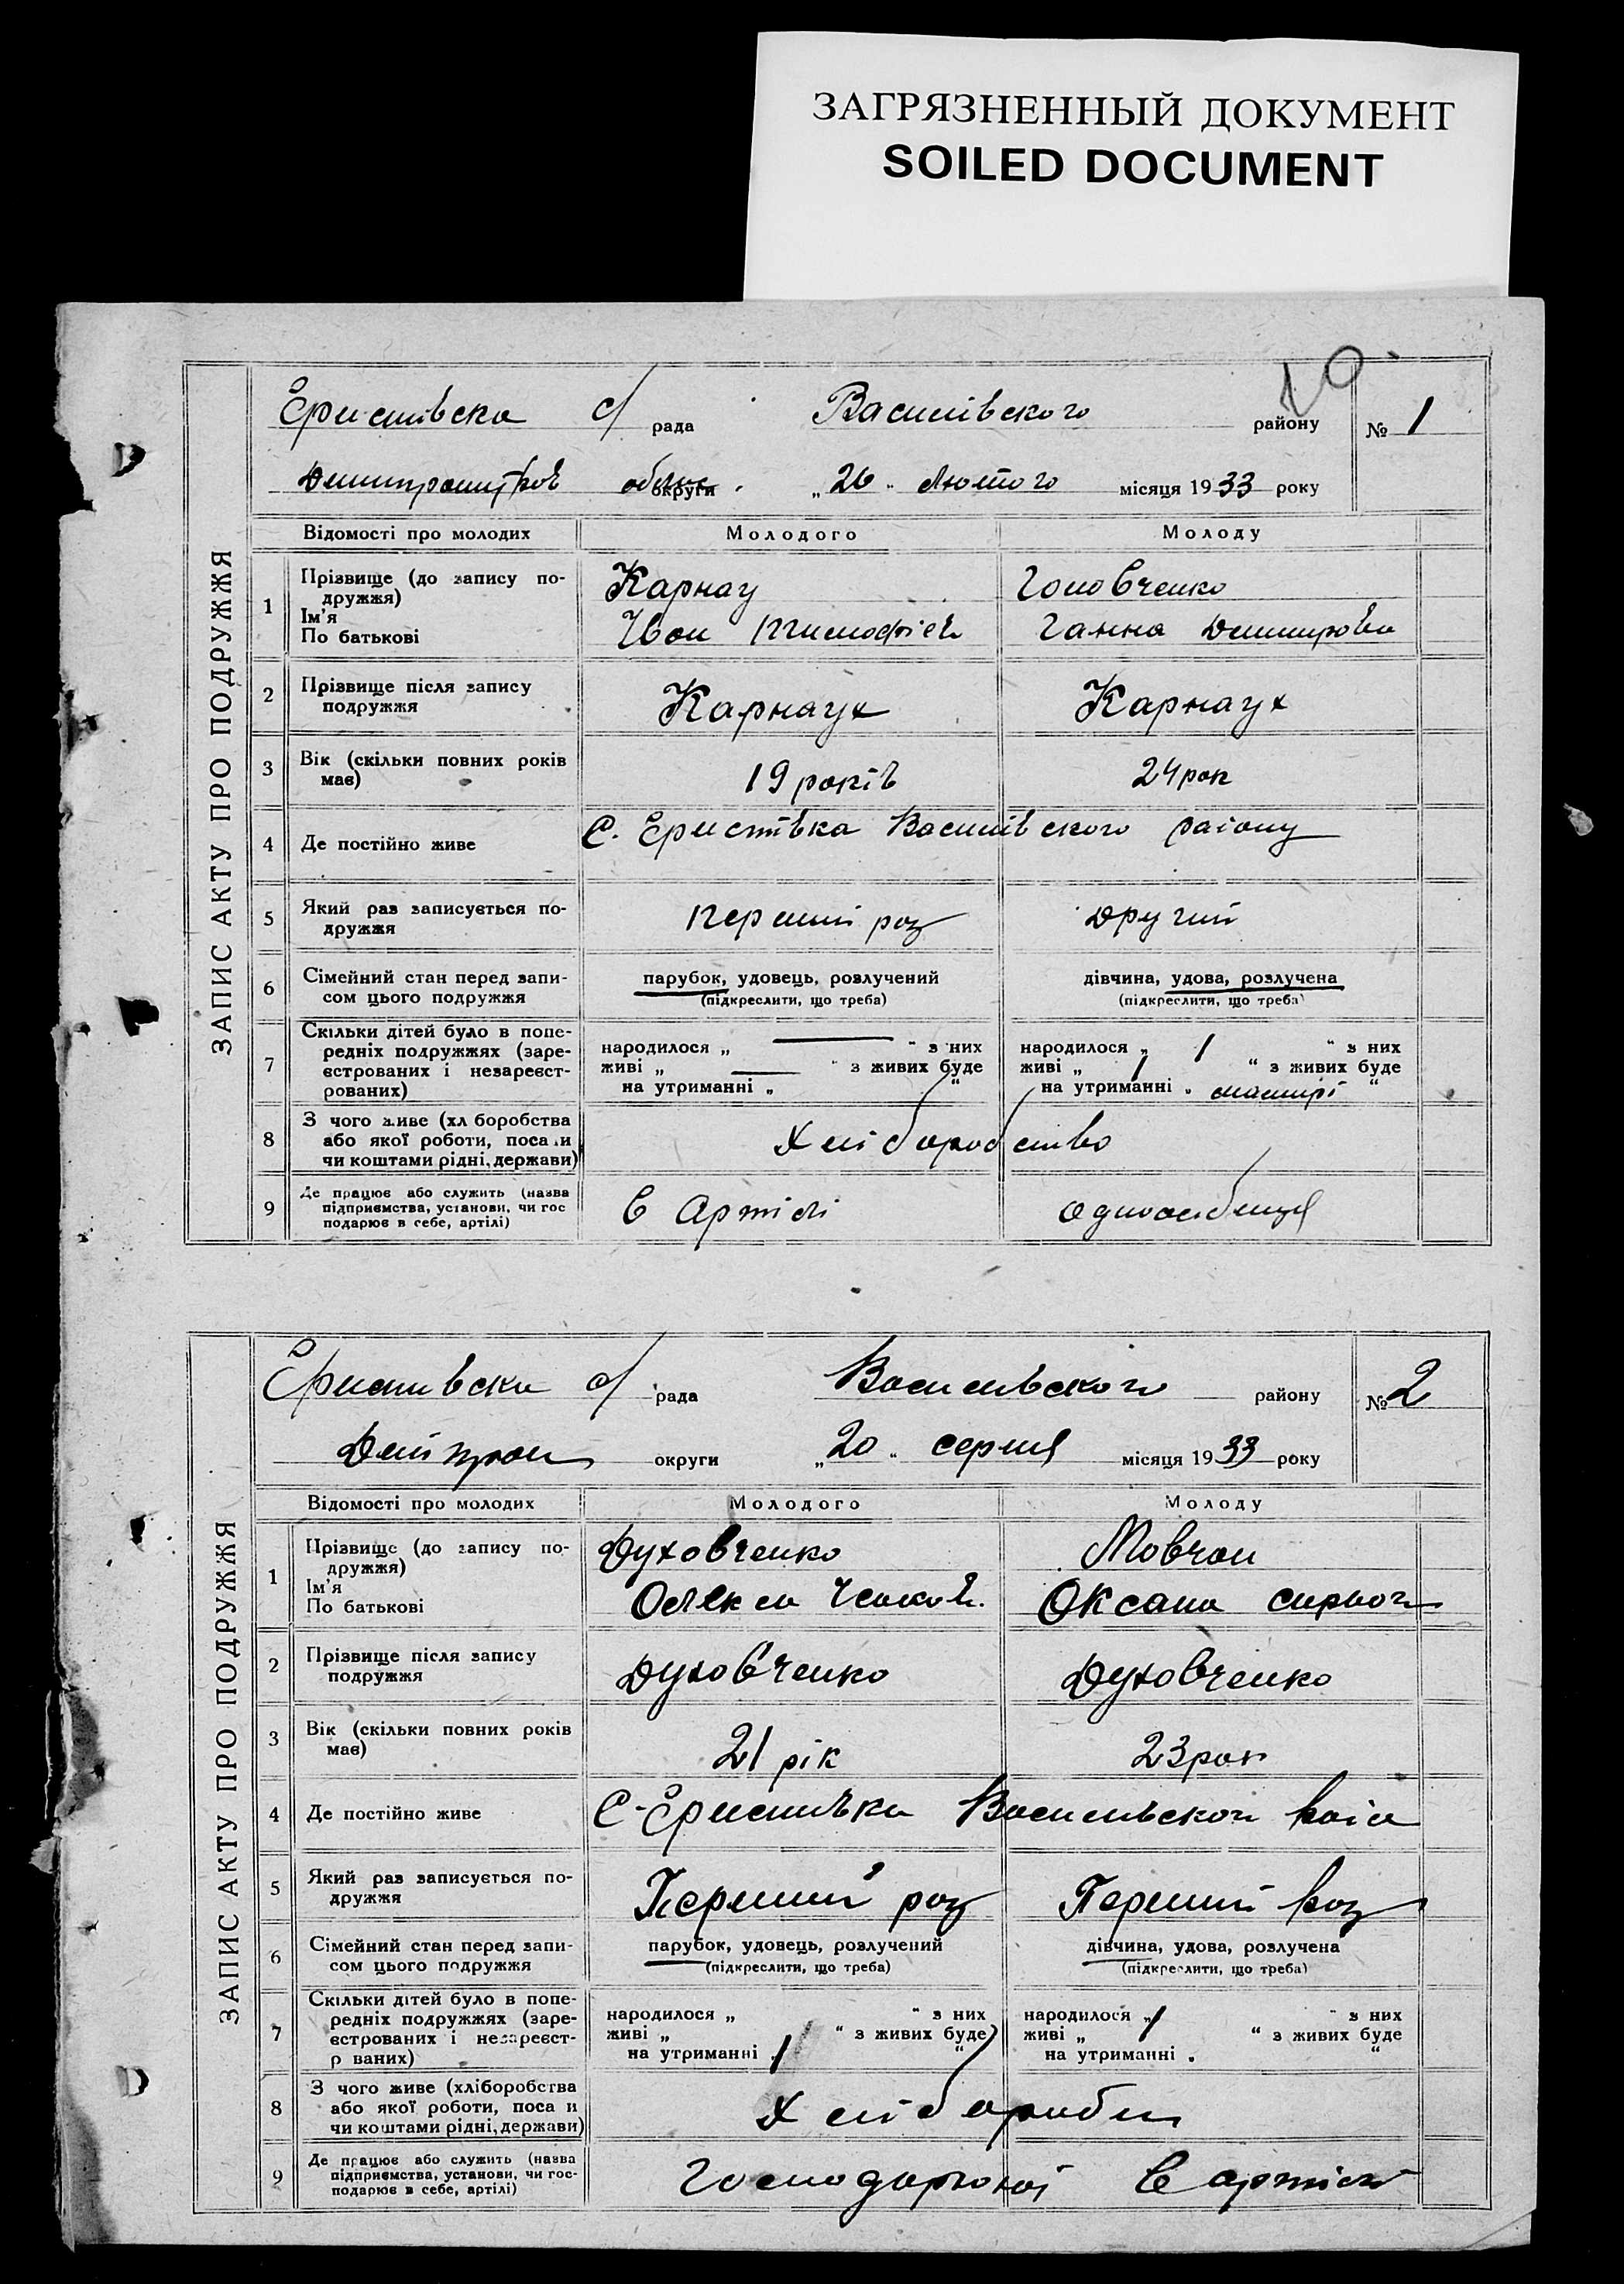 ЗАГРЯЗНЕННЫЙ ДОКУМЕНТ
SOILED DOCUMENT
10
ЗАПИС АКТУ ПРО ПОДРУЖЖЯ
Єристівска с/ рада Василівского району № 1
округи „26" Лютого місяця 1933 року
Відомості про молодих Молодого Молоду
1 Прізвище (до запису по-
дружжя) Карнау Головченко
Ім'я
По батькові Іван Тимофієв Ганна Дмитрова
2 Прізвище після запису
подружжя Карнаух Карнаух
3 Вік (скільки повних років
має) 19 років 24 рок
4 Де постійно живе С. Єристівка Василівского раіону
5 Який раз записується по-
дружжя перший раз другий
6 Сімейний стан перед запи-
сом цього подружжя парубок, удовець, розлучений дівчина, удова, розлучена
(підкреслити, що треба) (підкреслити, що треба)
7 Скільки дітей було в попе-
редніх подружжях (заре-
єстрованих і незареєст-
рованих) народилося „ — " з них народилося „ 1 " з них
живі „ — " з живих буде живі „ 1 " з живих буде
на утриманні „ " на утриманні „ матирі "
8 З чого живе (хл боробства
або якої роботи, поса и
чи коштами рідні, держави) Хліборобство
9 Де працює або служить (назва
підприємства, установи, чи гос
подарює в себе, артілі) В Артілі одноосібниця
ЗАПИС АКТУ ПРО ПОДРУЖЖЯ
Єристівска с/ рада Василівского району № 2
Дніпроп округи „20" серпня місяця 1933 року
Відомості про молодих Молодого Молоду
1 Прізвище (до запису по-
дружжя) Духовченко Мовчан
Ім'я
По батькові Олекса Оксана
2 Прізвище після запису
подружжя Духовченко Духовченко
3 Вік (скільки повних років
має) 21 рік 23 рок
4 Де постійно живе С-Єристівка
5 Який раз записується по-
дружжя Перший раз Перший раз
6 Сімейний стан перед запи-
сом цього подружжя парубок, удовець, розлучений дівчина, удова, розлучена
(підкреслити, що треба) (підкреслити, що треба)
7 Скільки дітей було в попе-
редніх подружжях (заре-
єстрованих і незареєст-
р ваних) народилося „ " з них народилося „ " з них
живі „ " з живих буде живі „ " з живих буде
на утриманні „ " на утриманні „ "
8 З чого живе (хліборобства
або якої роботи, поса и
чи коштами рідні, держави)
9 Де працює або служить (назва
підприємства, установи, чи гос-
подарює в себе, артілі) В артілі